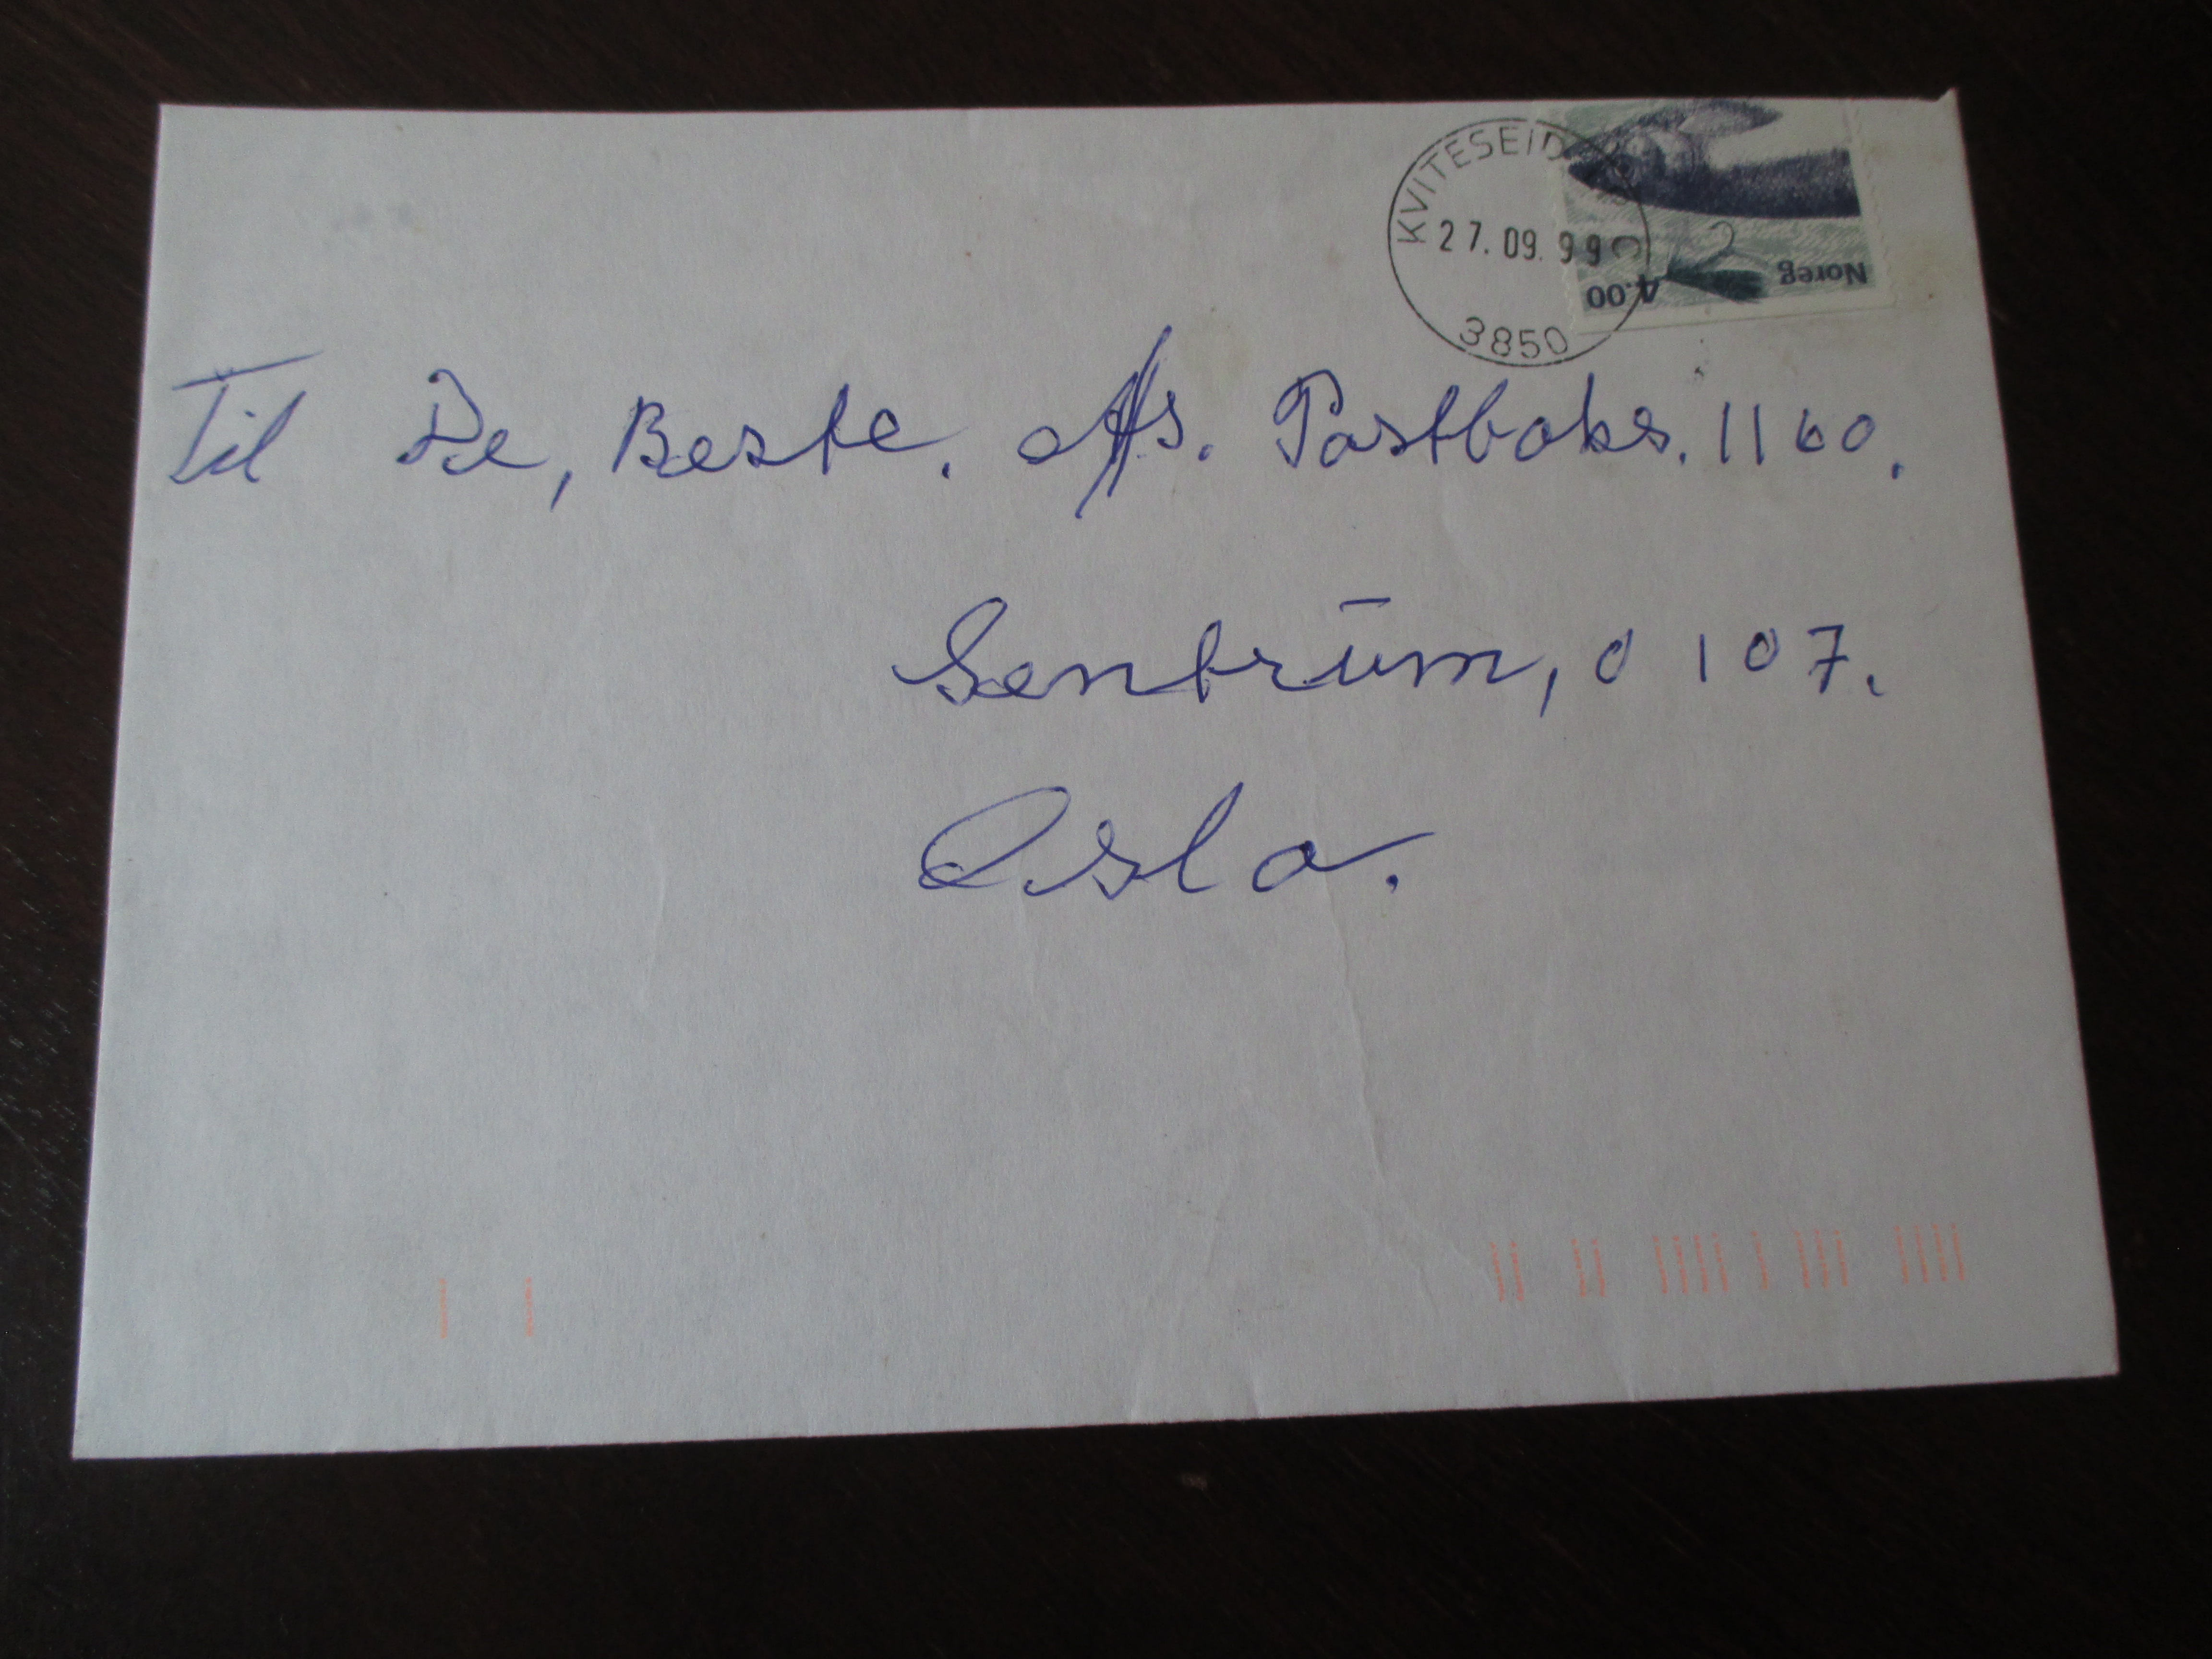 KVITESEID
27.09.99
3850
Noreg
4.00
Til De, Beste. A/s. Postboks. 1160.
Sentrum, 0107.
Oslo.